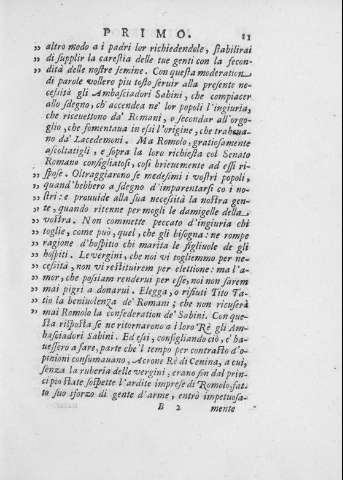 PRIMO. 11
„ altro modo a i padri lor richiedendole, stabilirai
„ di supplir la carestia delle tue genti con la fecon-
„ dità delle nostre femine. Con questa moderation
di parole vollero piu tosto seruir alla presente ne-
cessità gli Ambasciadori Sabini, che compiacer
allo sdegno, ch'accendea ne' lor popoli l'ingiuria,
che riceuettono da' Romani, o secondar all'orgo-
glio, che fomentaua in essi l'origine, che traheua-
no da' Lacedemoni. Ma Romolo, gratiosamente
ascoltatigli, e sopra la loro richiesta col Senato
Romano consigliatosi, così brieuemente ad essi ri-
„ spose. Oltraggiarono se medesimi i vostri popoli,
„ quand'hebbero a sdegno d'imparentarsi co i no-
„ stri: e prouuide alla sua necessità la nostra gen-
„ te, quando ritenne per mogli le damigelle della
„ vostra. Non commette peccato d'ingiuria chi
„ toglie, come può, quel, che gli bisogna: ne rompe
„ ragione d'hospitio chi marita le figliuole de gli
„ hospiti. Le vergini, che noi vi togliemmo per ne-
„ cessità, non vi restituirem per elettione: ma l'a-
„ mor, che possiam renderui per esse, noi non sarem
„ mai pigri a donarui. Elegga, o rifiuti Tito Ta-
„ tio la beniuolenza de' Romani; che non ricuserà
„ mai Romolo la confederation de' Sabini. Con que-
sta risposta se ne ritornarono a i loro Rè gli Am-
basciadori Sabini. Ed essi, consigliando ciò, c'ha-
uessero a fare, parte che'l tempo per contrasto d'o-
pinioni consumauano, Acrone Rè di Cenina, a cui,
senza la ruberia delle vergini, erano fin dal prin-
cipio state sospette l'ardite imprese di Romolo, fat-
to suo sforzo di gente d'arme, entrò impetuosa-
B 2 mente